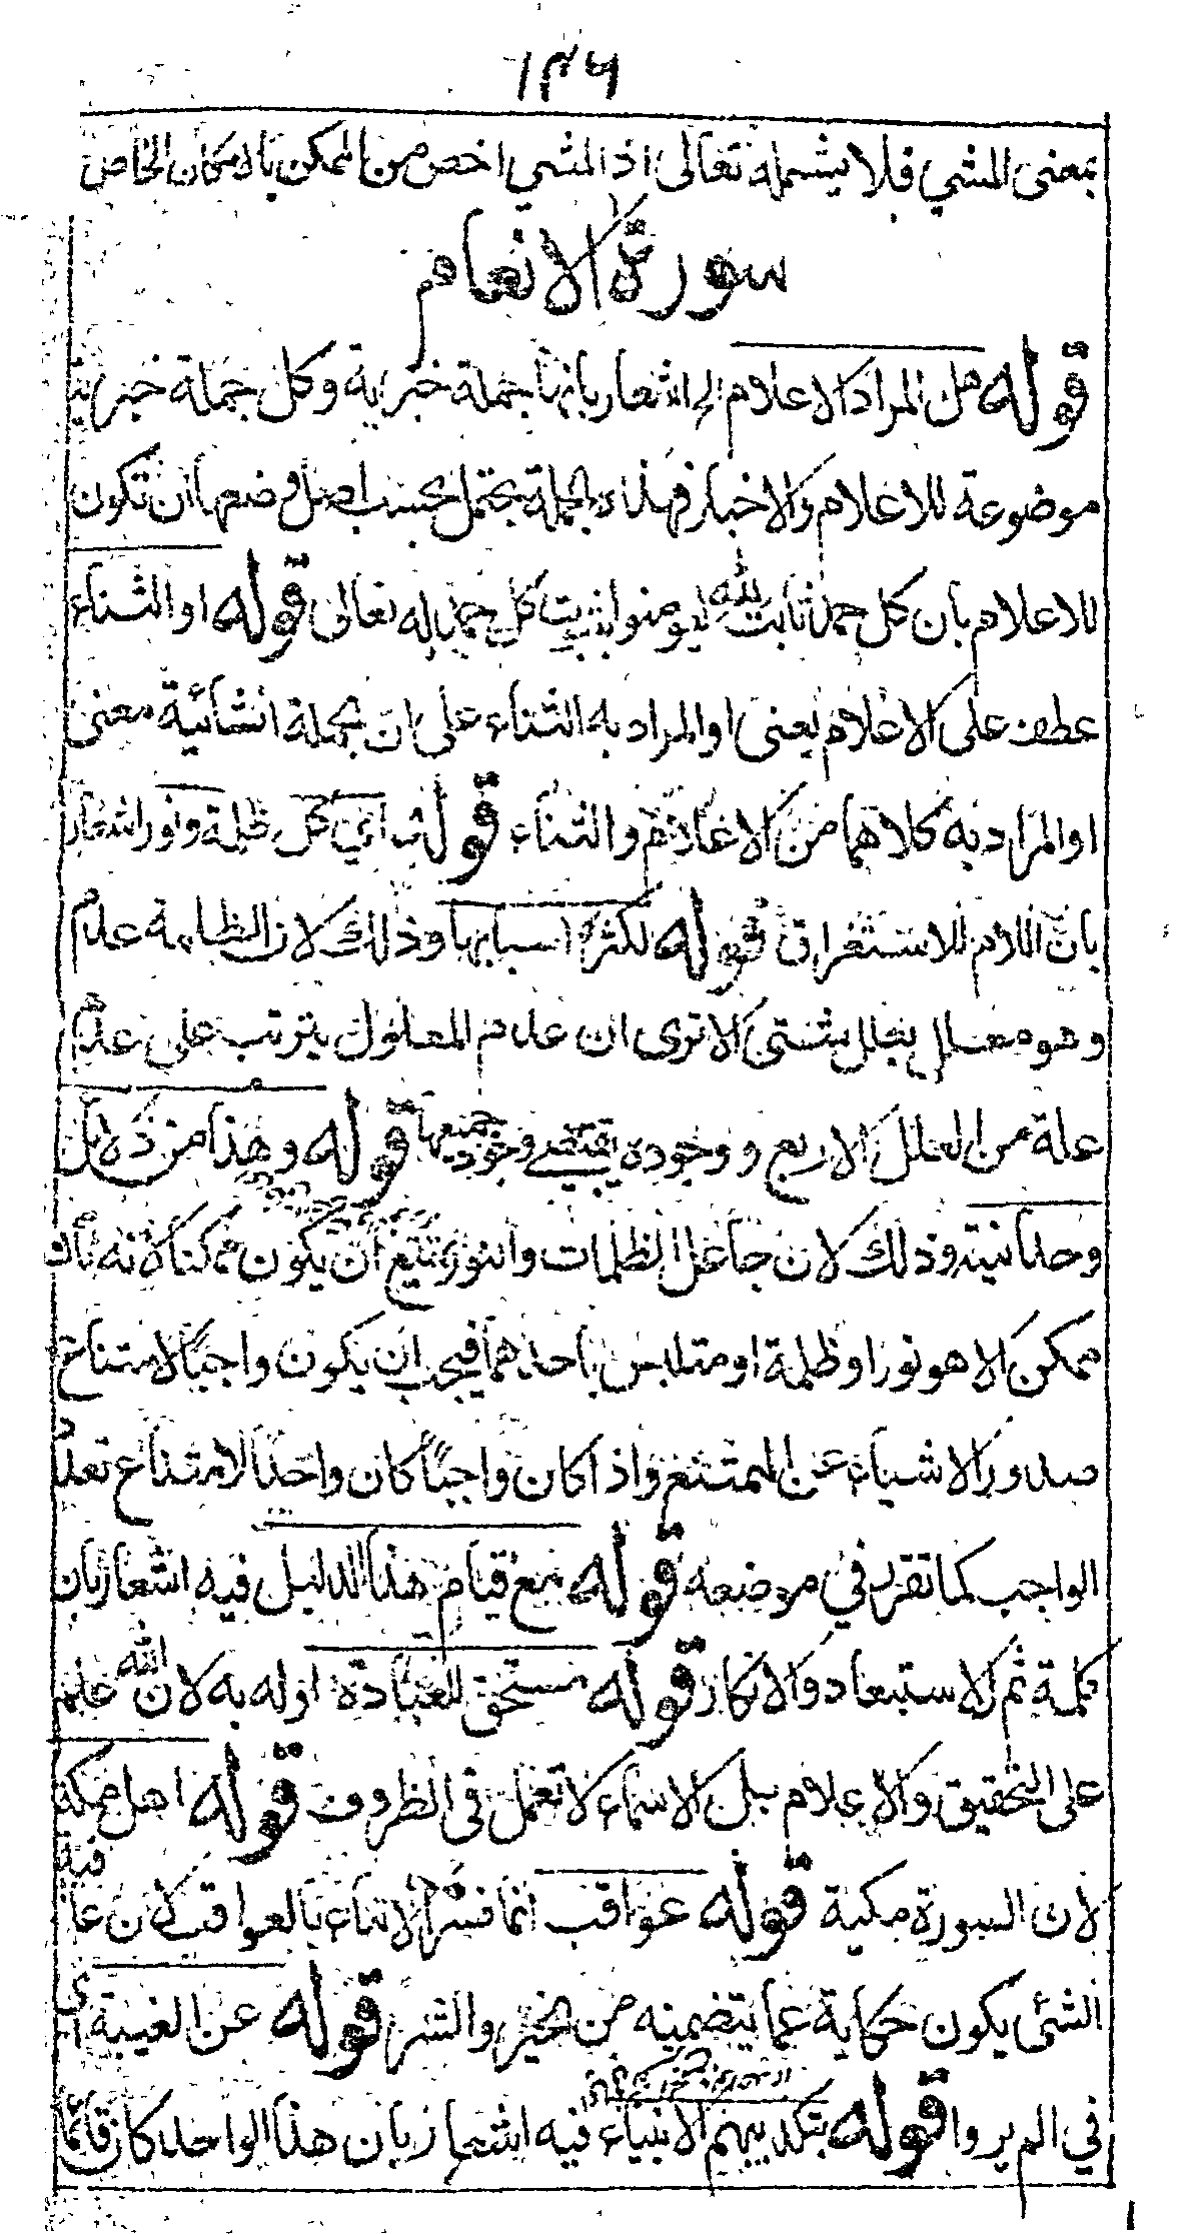 ۱۴۶
بمعنى المشي فلا يشمله تعالى اذ المشي اخص من الممكن بالامكان الخاص
سورة الانعام
قوله هل المراد الاعلام الخ اشعار بانها جملة خبرية وكل جملة خبرية
موضوعة للاعلام والاخبار فهذه الجملة يحتمل بحسب اصل وضعها ان تكون
للاعلام بان كل حمد ثابت لله ليومنوا بثبوت كل حمد له تعالى قوله او الثناء
عطف على الاعلام يعنى او المراد به الثناء على ان جملة انشائية معنى
او المراد به كلاهما من الاعلام والثناء قوله اي كل ظلمة ونور اشعار
بان اللام للاستغراق قوله لكثرة اسبابها وذلك لان الظلمة عدم
وهو معلل بعلل شتى الا ترى ان عدم المعلول يترتب على عدم
علة من العلل الاربع ووجوده يقتضي وجود جميعها قوله وهذا من دلايل
وحدانيته وذلك لان جاعل الظلمات والنور يمتنع ان يكون ممكنا لانه
ممكن الا هو نور او ظلمة او متلبس باحدهما فيجب ان يكون واجبا لامتناع
صدور الاشياء عن الممتنع واذا كان واجبا كان واحدا لامتناع تعدد
الواجب كما تقرر في موضعه قوله مع قيام هذا الدليل فيه اشعار بان
كلمة ثم للاستبعاد والانكار قوله مستحق للعبادة اوله به لان الله علم
على التحقيق والاعلام بل الاسماء لا تعمل في الظروف قوله اهل مكة
لان السورة مكية قوله عواقب انما فسر الانباء بالعواقب لان فيه
الشئ يكون حكاية عما يتضمنه من الخير والشر قوله عن الغيبة اي
في الم يروا قوله بتكذيبهم الانبياء فيه اشعار بان هذا الواحد كان قائما